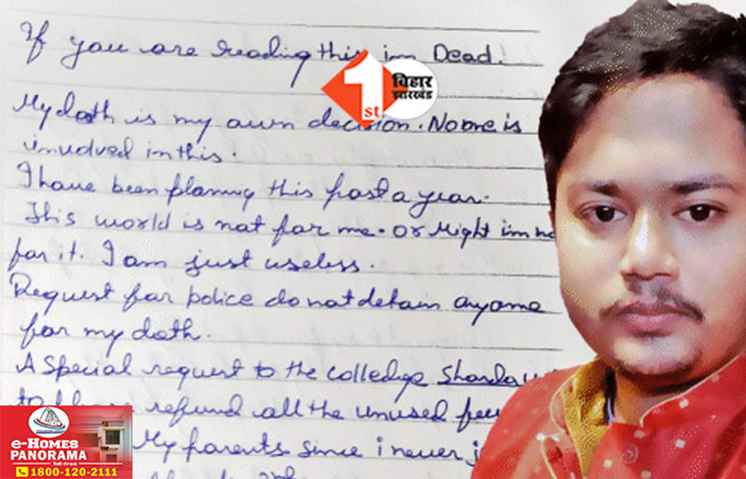 If you are reading this im Dead.
1st
बिहार
झारखंड
My death is my own decision. No one is
involved in this.
I have been planning this past a year.
This world is not for me. or Might im no
for it. I am just useless.
Request for police do not detain anyone
for my death.
A Special request to the colledge Sharda
refund all the unused fee
My parents since i never j
e-HOMES
PANORAMA
1800-120-2111